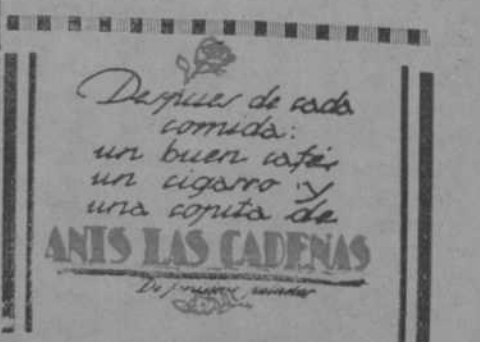 Despues de cada
comida:
un buen café,
un cigarro y
una copita de
ANIS LAS CADENAS
De